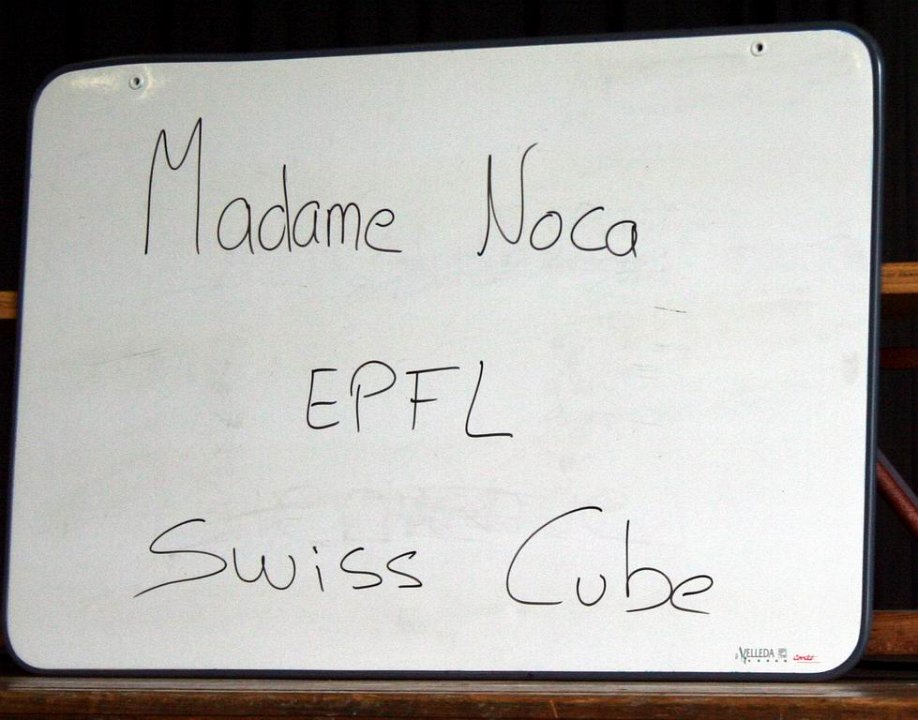 Madame Noca
EPFL
Swiss Cube
VELLEDA